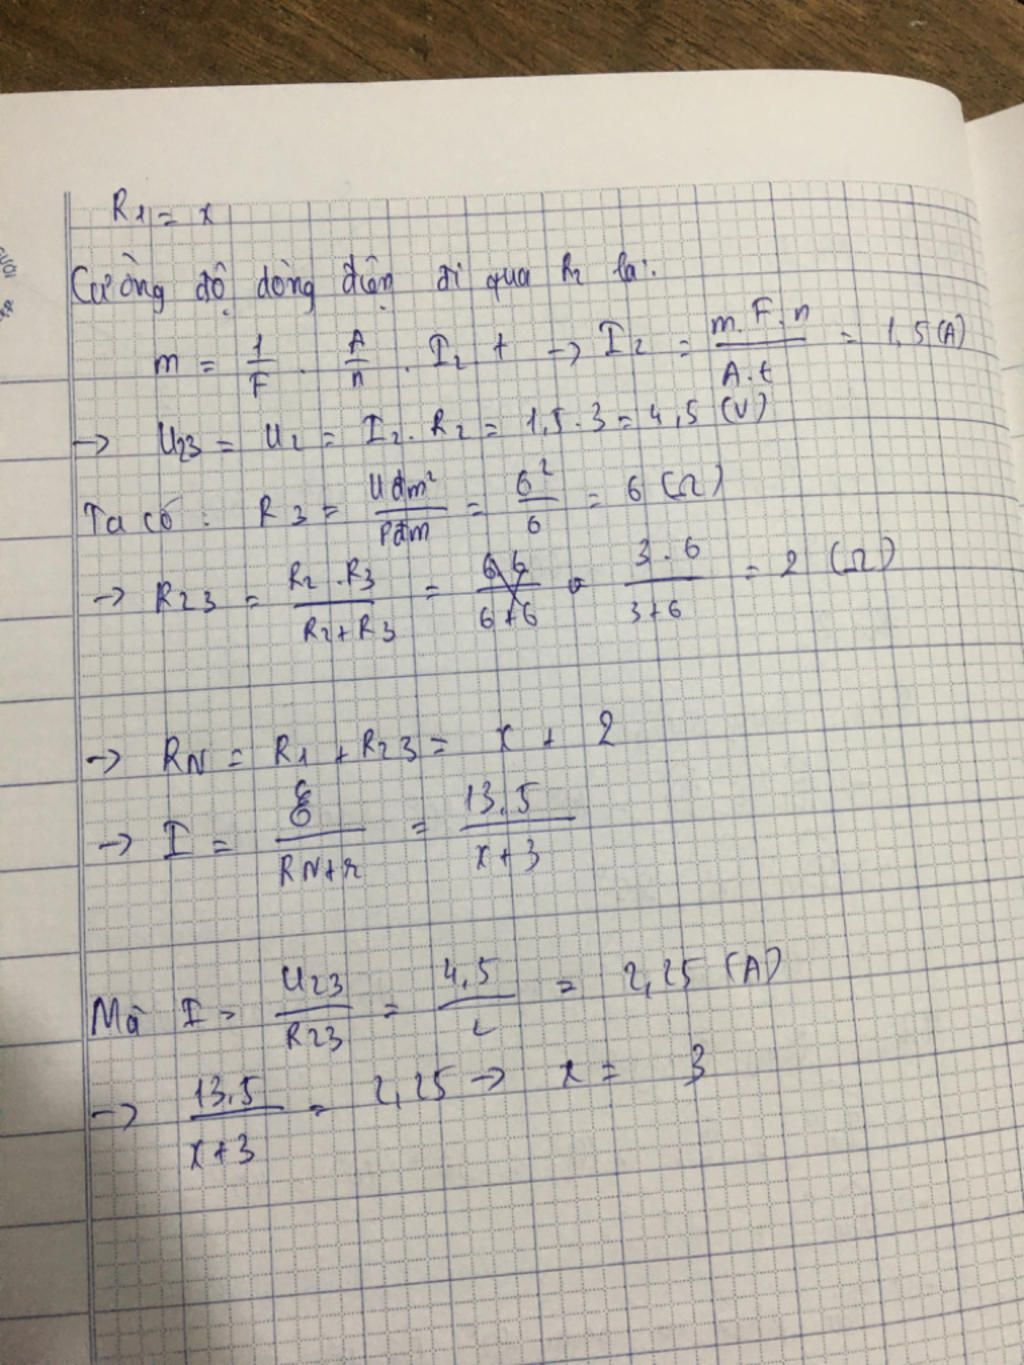 R1 = x
Cường độ dòng điện đi qua R2 là:
m = 1/F . A/n . I2 t → I2 = m.F.n/A.t = 1,5 (A)
→ U23 = U2 = I2 . R2 = 1,5 . 3 = 4,5 (V)
Ta có : R3 = Uđm²/Pđm = 6²/6 = 6 (Ω)
→ R23 = R2 . R3/R2 + R3 = 3 . 6/3+6 = 2 (Ω)
→ RN = R1 + R23 = x + 2
→ I = ξ/RN+r = 13,5/x+3
Mà I = U23/R23 = 4,5/2 = 2,25 (A)
→ 13,5/x+3 = 2,25 → x = 3